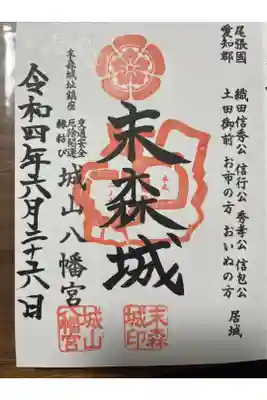 尾張國
愛知郡
織田信秀公 信行公 秀孝公 信包公
土田御前 お市の方 おいぬの方 居城
末森城
末森城址鎮座
交通安全
厄除開運
縁結び
城山八幡宮
令和四年六月二十六日
末森
城印
城山
八幡宮